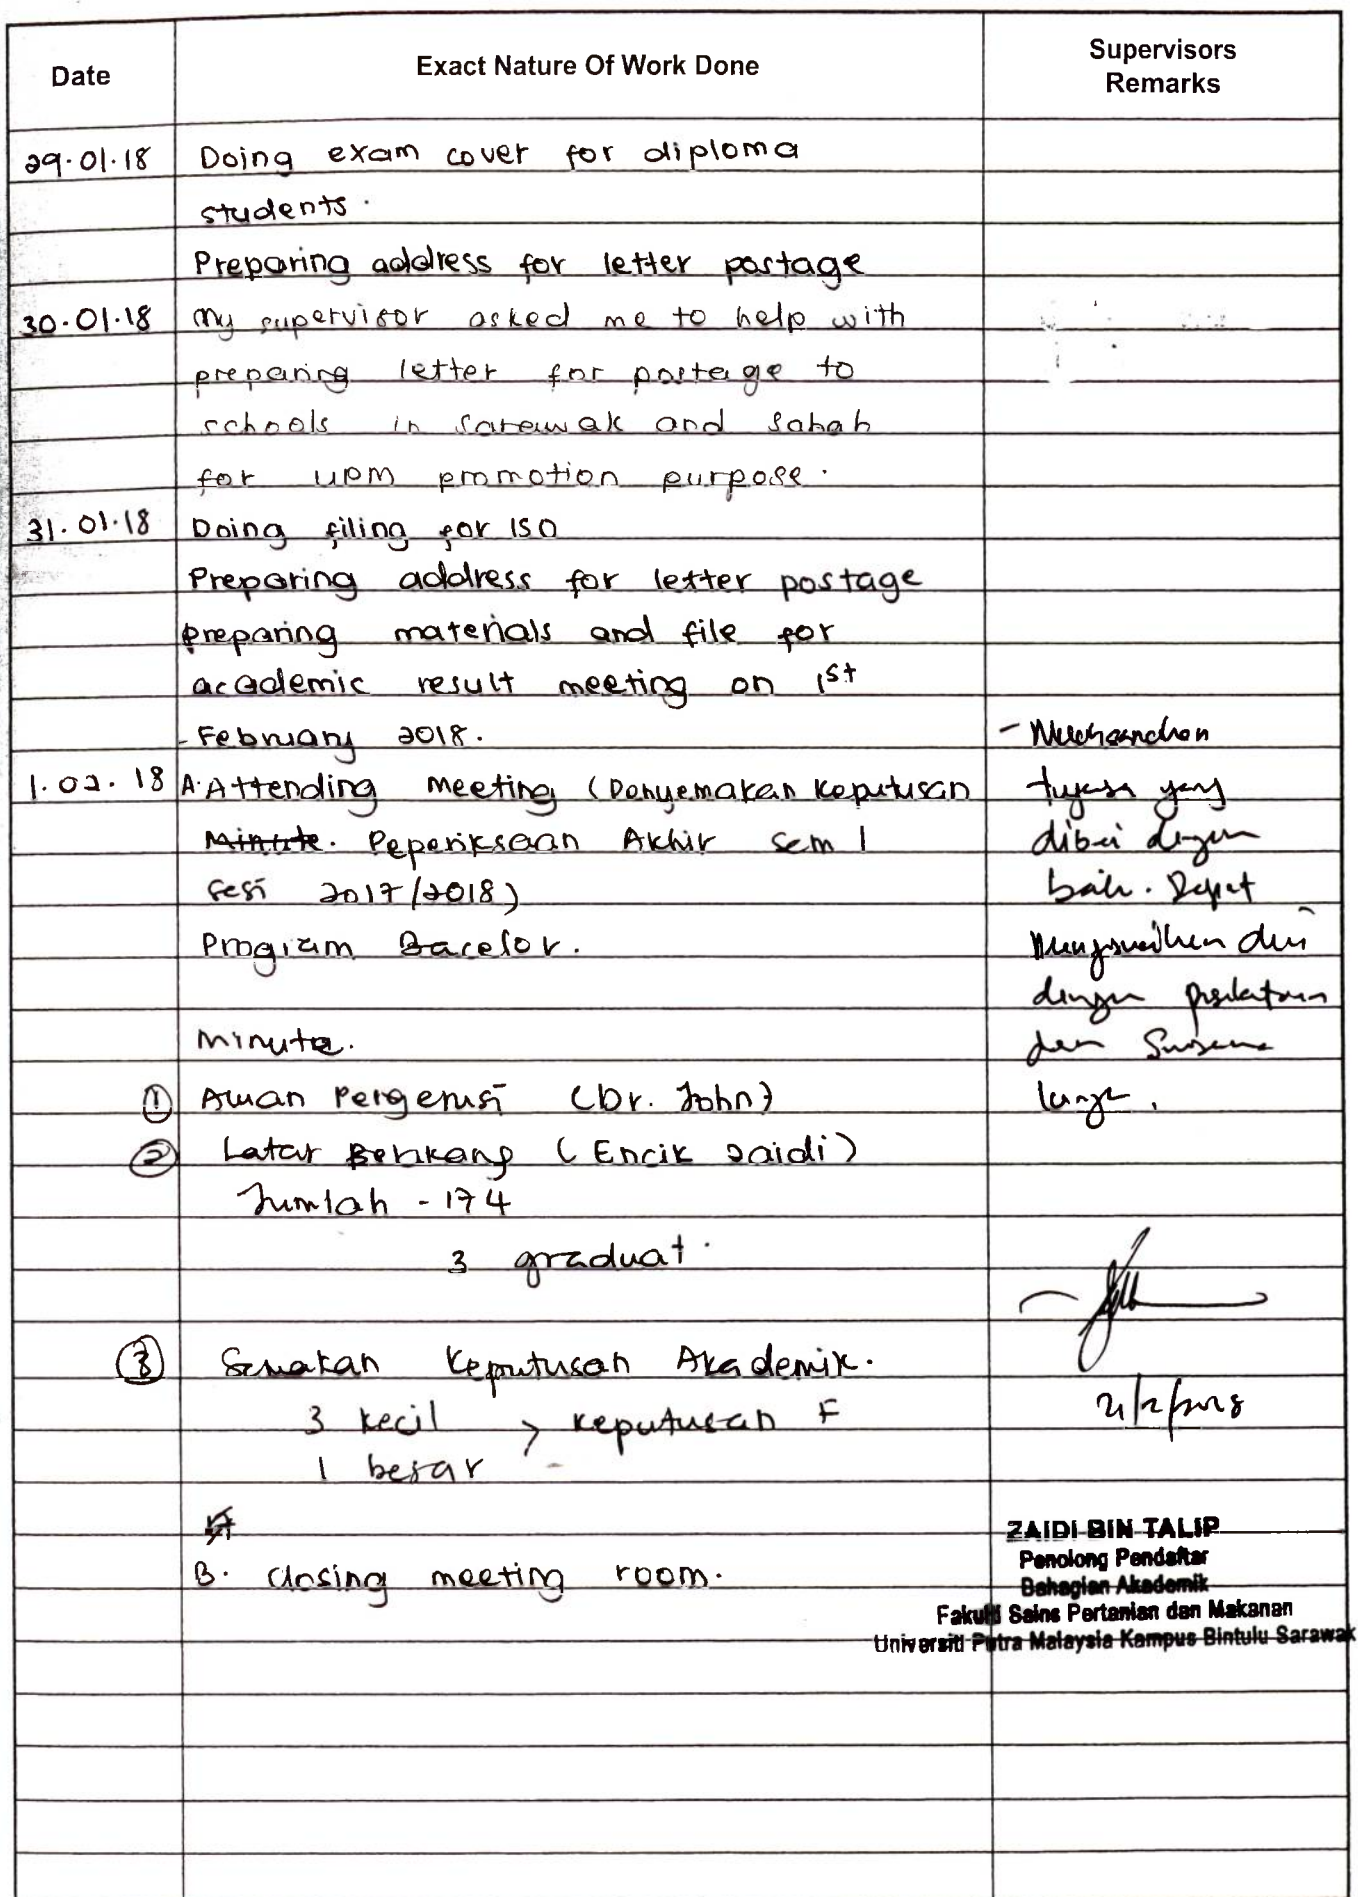 Date
Exact Nature Of Work Done
Supervisors
Remarks
29.01.18 Doing exam cover for diploma
students.
Preparing address for letter postage
30.01.18 My supervisor asked me to help with
preparing letter for postage to
schools in Sarawak and Sabah
for UPM promotion purpose.
31.01.18 Doing filing for ISO
Preparing address for letter postage
preparing materials and file for
academic result meeting on 1st
- February 2018.
1.02.18 A. Attending meeting (Penyemakan Keputusan
Minute. Peperiksaan Akhir sem 1
sesi 2017/2018)
Program Bacelor.
minute.
① Aluan Pengerusi (Dr. John)
② Latar Belakang (Encik Zaidi)
Jumlah - 174
3 graduat.
③ Semakan Keputusan Akademik.
3 kecil > keputusan F
1 besar
B. closing meeting room.
tugasan yang
diberi dengan
baik. Dapat
Menyesuaikan diri
dengan
dan Suasana
ZAIDI BIN TALIP
Penolong Pendaftar
Bahagian Akademik
Fakulti Sains Pertanian dan Makanan
Universiti Putra Malaysia Kampus Bintulu Sarawak